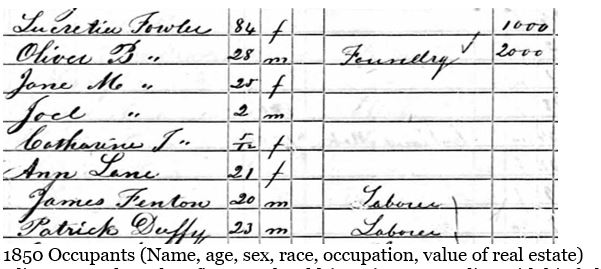 Lucretia Fowler 84 f 1000
Oliver B " 28 m Foundry 2000
Jane M " 25 f
Joel " 2 m
Catharine T " 5/12 f
Ann Lane 21 f
James Fenton 20 m Laborer
Patrick Duffy 23 m Laborer
1850 Occupants (Name, age, sex, race, occupation, value of real estate)